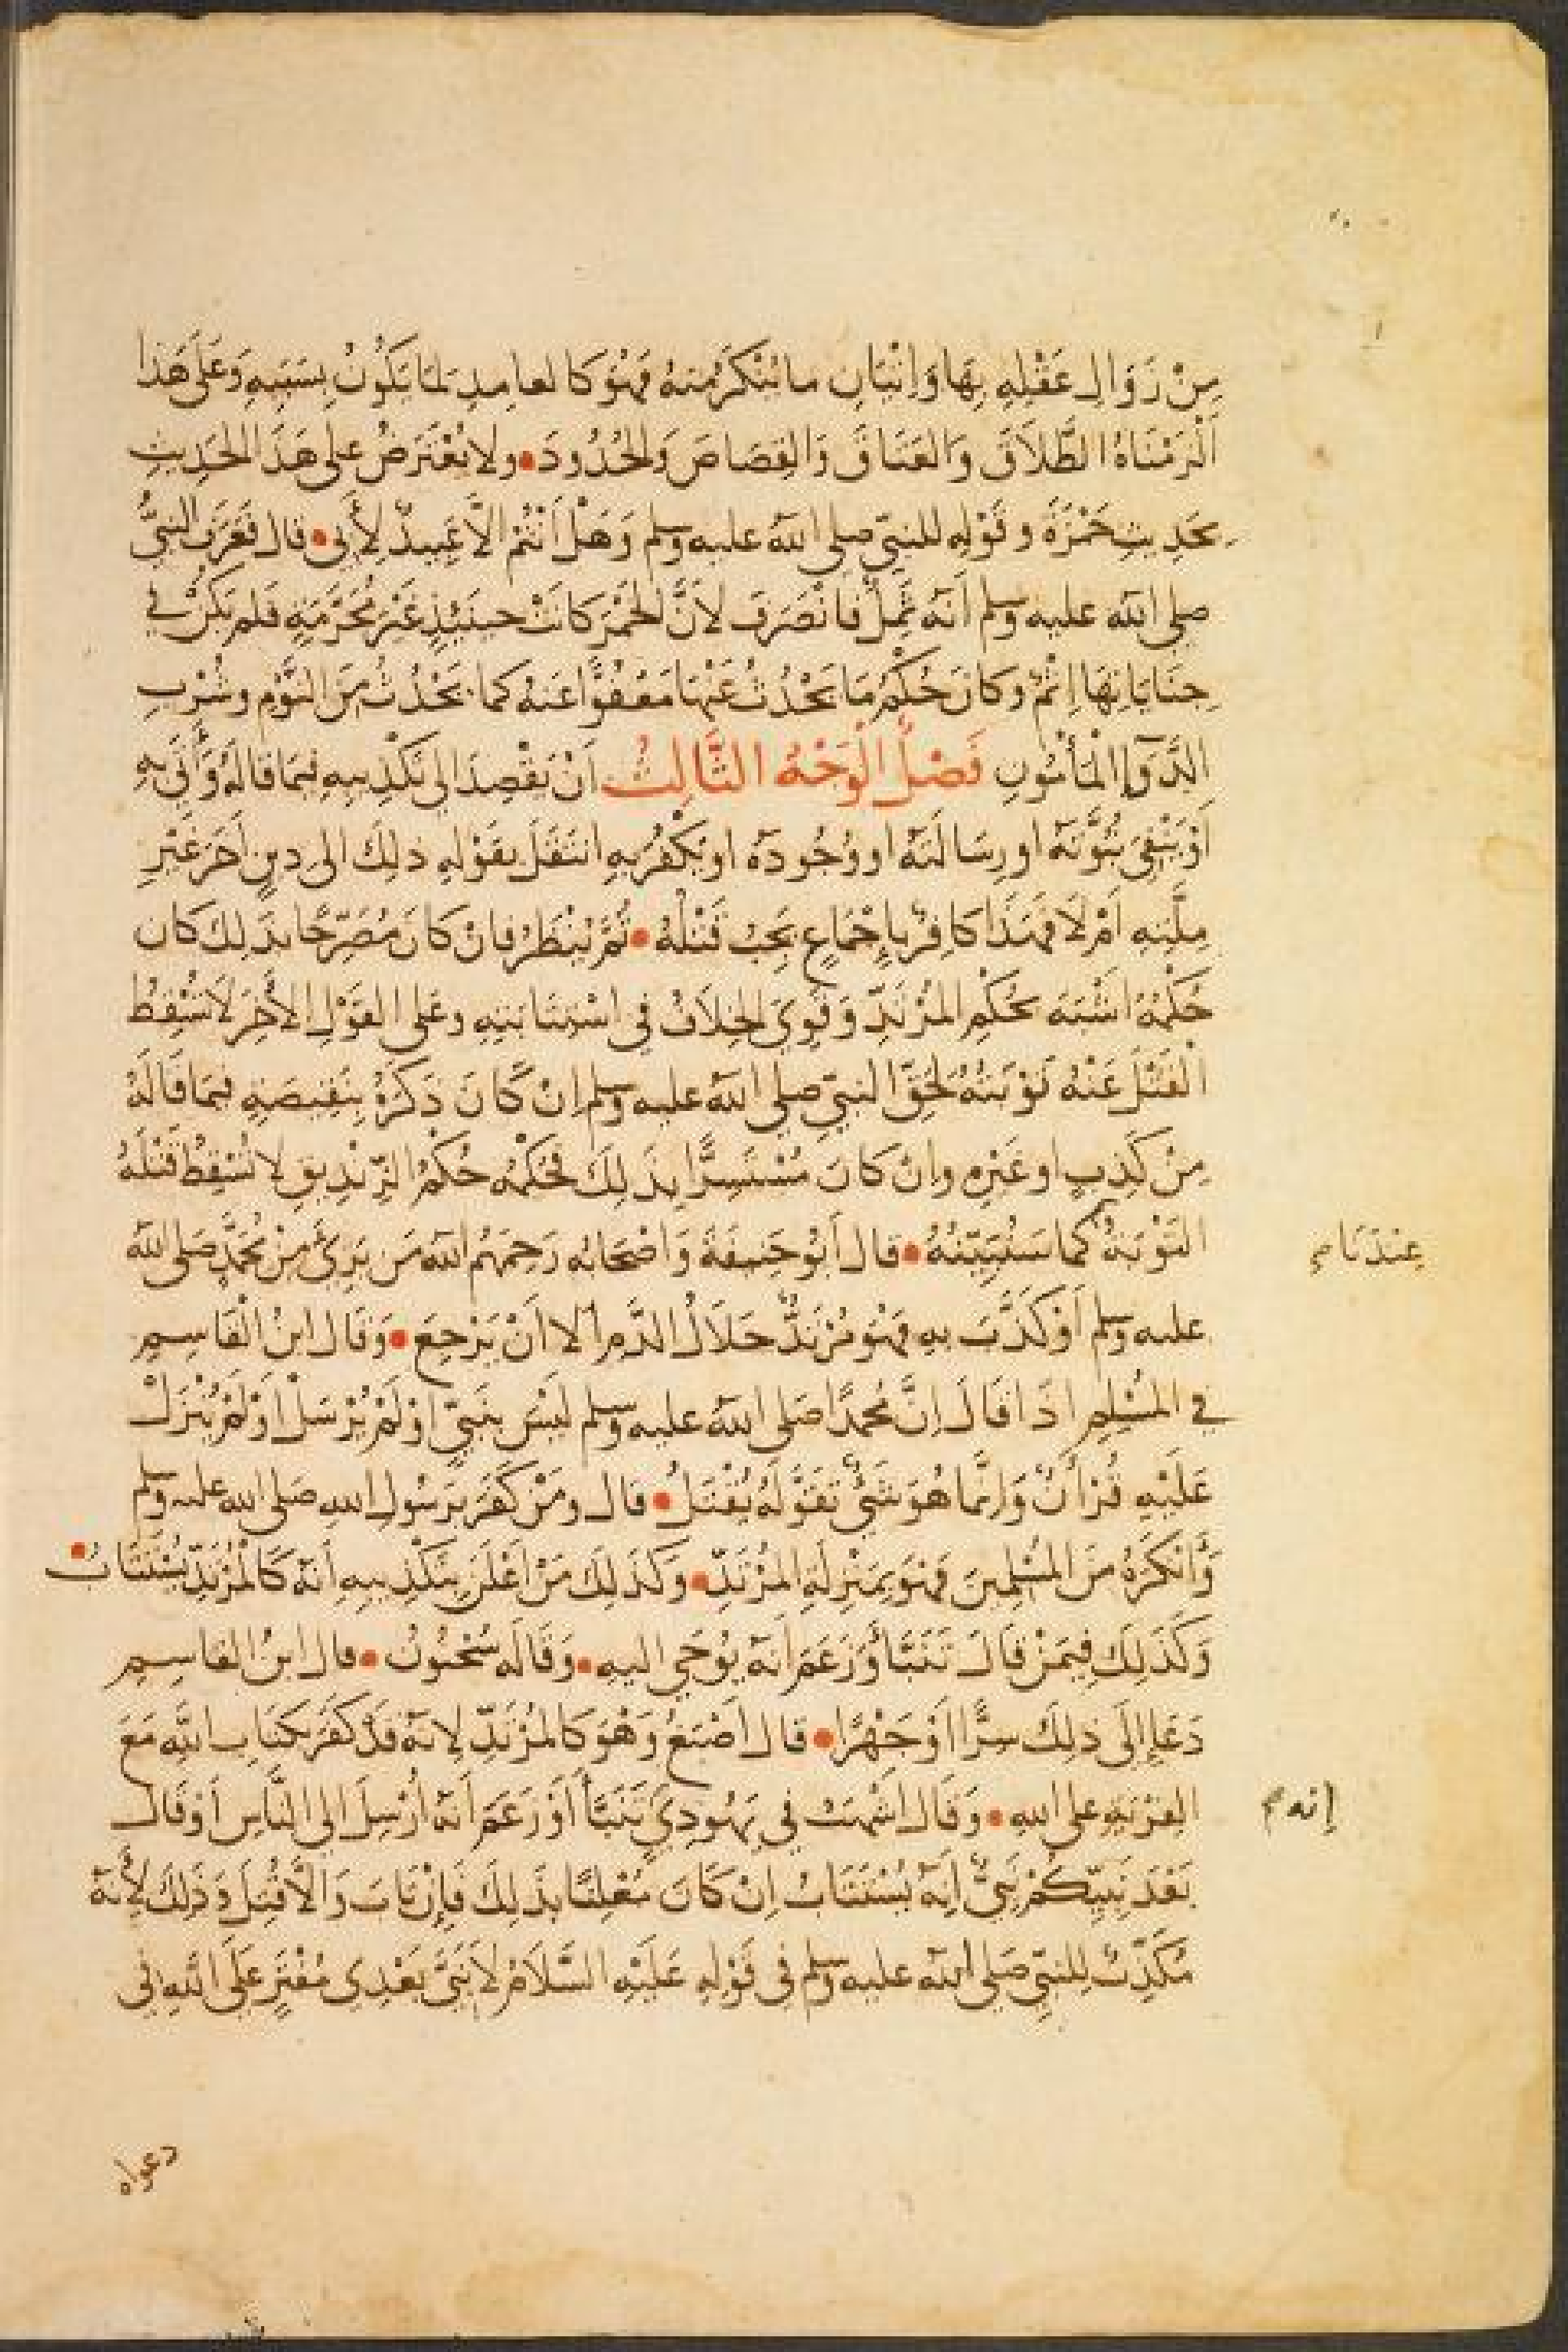 مِنْ زَوَالِ عَقْلِهِ بِهَا وَاِتْيَانِ ما يُنْكَرُ مِنهُ فَهُوَ كَالعامِدِ لمَا يَكُونُ بِسَبَبِهِ وَعَلَى هَذا
اَلْزَمْنَاهُ الطَّلَاقَ وَالعَتَاقَ وَالقِصَاصَ وَالحُدُودَ • ولا يُعْتَرَضُ على هَذَا الحَدِيثِ
بحَدِيثِ حَمْزَةَ وقَوْلِهِ للنبيّ صلى الله عليه وسلم وَهَلْ اَنْتُمْ الاَّ عَبِيدٌ لِأَبى • قال فَعَرَفَ النبيُّ
صلى الله عليه وسلم اَنّه ثَمِلٌ فانْصَرَفَ لاَنَّ الخَمْرَ كانَتْ حينَئِذٍ غَيْرَ مُحَرَّمَةٍ فلم يَكُنْ في
جِنَايَاتِهَا اِثْمٌ وكانَ حُكْمُ مَا يَحْدُثُ عَنْهَا مَعْفُوًّا عَنهُ كما يَحْدُثُ مِنَ النَّوْمِ وشُرْبِ
الدَّوَآءِ المَأْمُونِ فَصْلٌ الْوَجْهُ الثَّالِثُ اَنْ يَقْصِدَ الى تَكْذِيبِهِ فيمَا قالَهُ وَأَتَى بِهِ
اَوْ يَنْفِىَ نُبُوَّتَهُ او رِسَالَتَهُ او وُجُودَهُ او يَكْفُرُ بِهِ انتَقَلَ بقَوْلِهِ ذلِكَ الى دِينٍ آخَرَ غَيْرِ
مِلَّتِهِ اَمْ لَا فَهَذَا كافِرٌ بِاِجْمَاعٍ يَجِبُ قَتْلُهُ • ثُمَّ يُنْظَرُ فانْ كانَ مُصَرِّحًا بذَلِكَ كان
حُكْمُهُ اشْبَهَ بحُكْمِ المُرْتَدِّ وَقَوِيَ الخِلَافُ فى اسْتِتَابَتِهِ وعَلى القَوْلِ الآخَرِ لَا تُسْقِطُ
الْقَتْلَ عَنْهُ تَوْبَتُهُ لحَقِّ النبيّ صلى الله عليه وسلم اِنْ كَانَ ذَكَرَهُ بِنَقِيصَةٍ فيمَا قَالَهُ
مِنْ كَذِبٍ او غَيْرِهِ وانْ كانَ مُتَسَتِّرًا بذَلِكَ فحُكْمُهُ حُكْمُ الزِّنْدِيقِ لا تُسْقِطُ قَتْلَهُ
التَوْبَةُ كما سَنُبَيِّنُهُ • قال اَبُو حَنِيفَةَ وَاصْحَابُه رَحِمَهُم الله مَن بَرِئَ مِنْ مُحَمَّدٍ صَلى الله
عِنْدَنَا
عليه وسلم اَوْ كَذَّبَ بهِ فَهُوَ مُرْتَدٌّ حَلَالُ الدَّمِ اِلا اَنْ يَرْجِعَ • وَقَال ابنُ الْقَاسِمِ
في المُسْلِمِ اذَا قَالَ اِنَّ مُحمدًا صَلى الله عليه وسلم لَيْسَ بِنَبِيّ اوْ لَمْ يُرْسَلْ اوْ لَمْ يُنْزَلْ
عَلَيْهِ قُرْاَنٌ وَاِنَّما هُوَ شَىْءٌ تَقَوَّلَهُ يُقْتَلُ • قال ومَنْ كَفَرَ بِرَسُولِ الله صَلى الله عليه وسلم
وَأَنْكَرَهُ مِنَ المُسْلِمِينَ فَهُوَ بِمَنْزِلَةِ المُرْتَدِّ • وَكَذَلِكَ مَنْ اَعْلَنَ بتَكْذِيبِهِ اَنّهُ كَالمُرْتَدِّ يُسْتَتَابُ •
وَكَذَلِكَ فِيمَنْ قَالَ تَنَبَّأَ وَزَعَمَ اَنّهُ يُوحَى اليهِ • وَقَالَه سُحْنُونُ • قال ابنُ القاسِمِ
دَعَا إِلَى ذلِكَ سِرًّا اَوْ جَهْرًا • قال اَصْبَغُ وَهْوَ كالمُرْتَدِّ لاِنّهُ قَدْ كَفَرَ بكتَابِ اللهِ مَعَ
الفِرْيَةِ على الله • وَقَال اشْهَبُ فى يَهُودِيٍّ تَنَبَّأَ اَوْ زَعَمَ اَنّهُ اُرْسِلَ الى النَّاسِ اَوْ قَالَ
إنه
بَعْدَ نَبِيِّكُمْ نَبِيٌّ اَنَهُ يُسْتَتَابُ اِنْ كَانَ مُعْلِنًا بذَلِكَ فَإِنْ تَابَ وَالاَّ قُتِلَ وَذَلِكَ لِأَنّهُ
مُكَذِّبٌ لِلنبيّ صَلى الله عليه وسلم فى قَوْلِهِ عَلَيْهِ السَّلَامُ لاَ نَبِيَّ بَعْدِى مُفْتَرٍ عَلَى اللهِ فى
دعواه